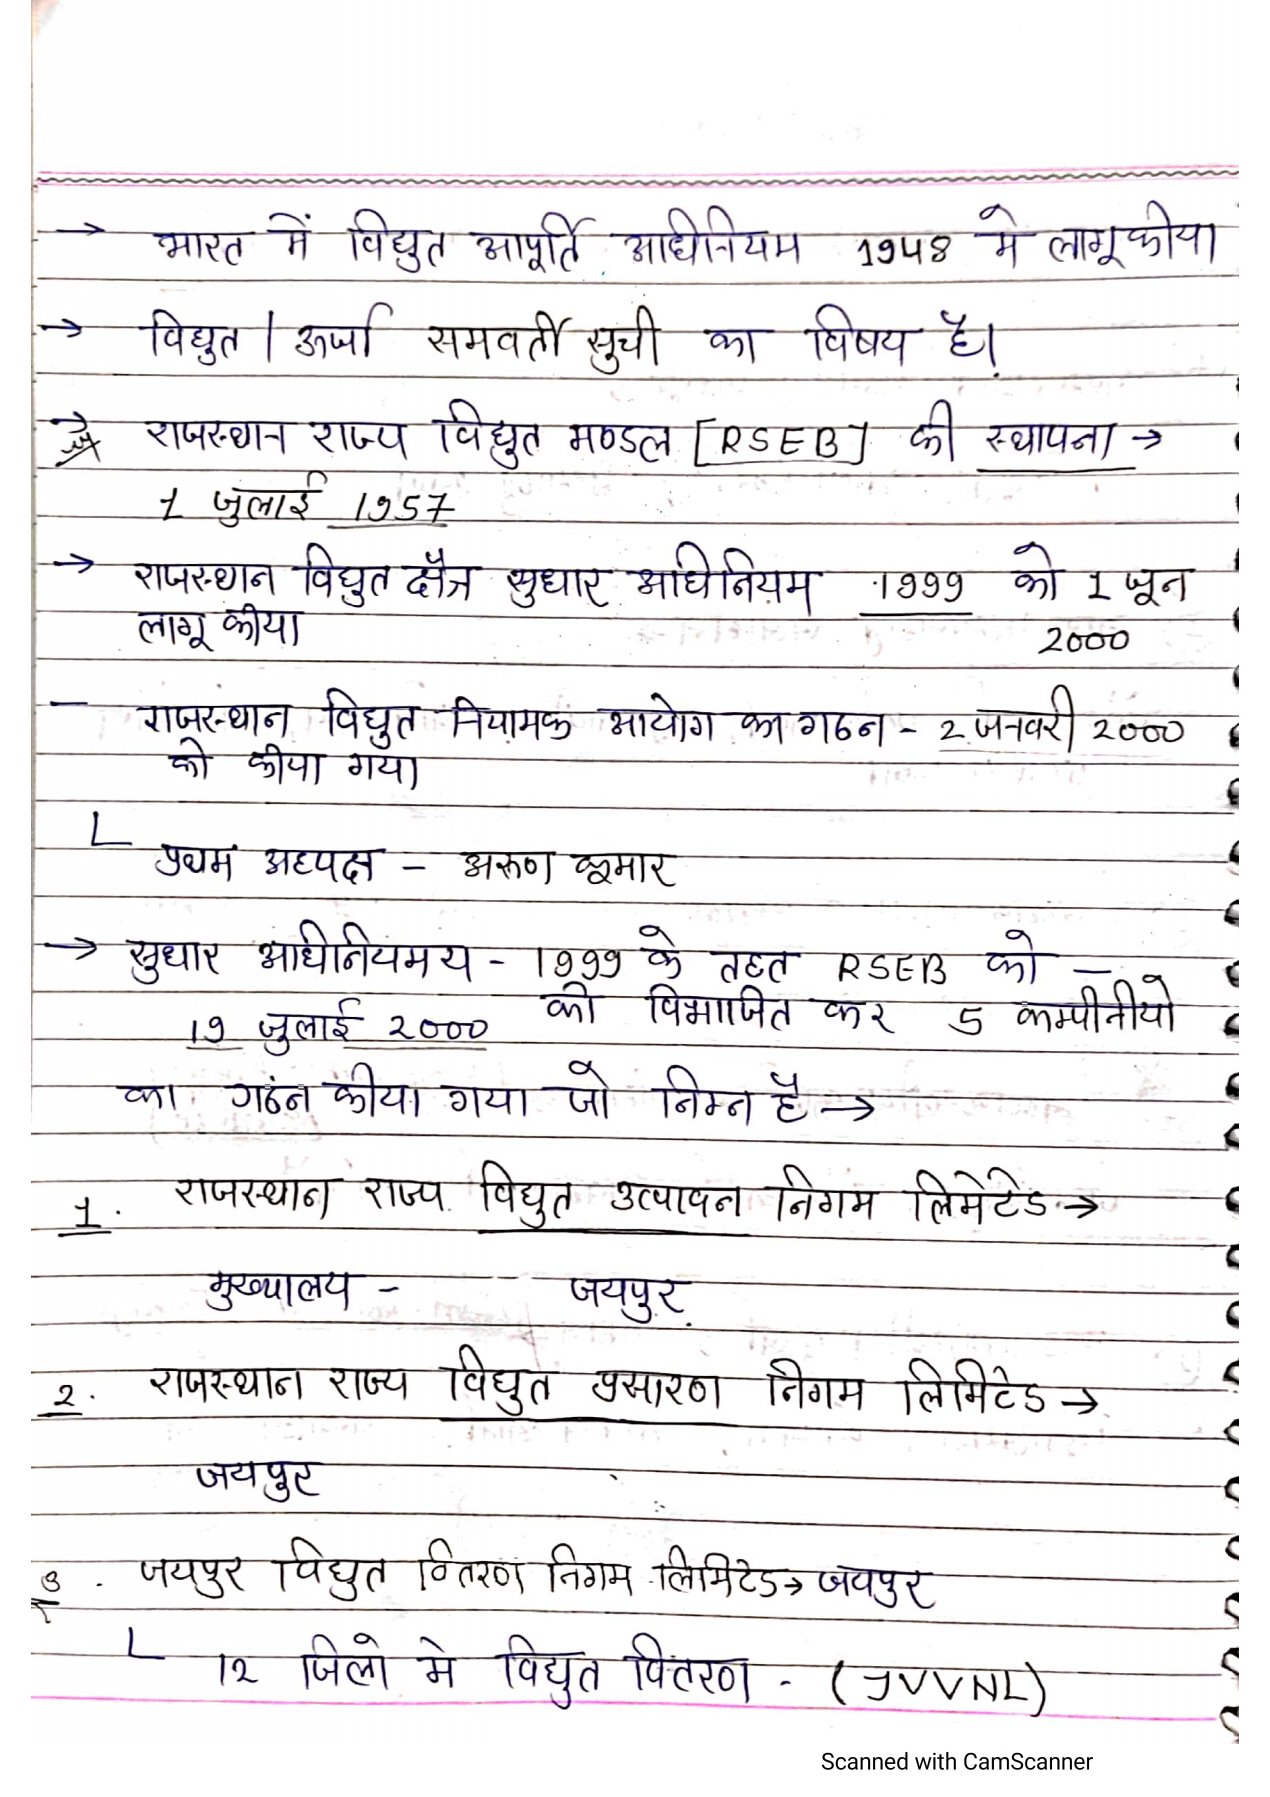 → भारत में विद्युत आपूर्ति अधिनियम 1948 मे लागू कीया
→ विद्युत / ऊर्जा समवर्ती सुची का विषय है।
→ राजस्थान राज्य विद्युत मण्डल [RSEB] की स्थापना →
1 जुलाई 1957
→ राजस्थान विद्युत क्षैत्र सुधार अधिनियम 1999 को 1 जून
लागू कीया 2000
- राजस्थान विद्युत नियामक आयोग का गठन - 2 जनवरी 2000
को कीया गया
प्रथम अध्यक्ष - अरुण कूमार
→ सुधार अधिनियमय - 1999 के तहत RSEB को -
19 जुलाई 2000 को विभाजित कर 5 कम्पीनीयो
का गठंन कीया गया जो निम्न है →
1. राजस्थान राज्य विद्युत उत्पादन निगम लिमेटेड →
मुख्यालय - जयपुर
2. राजस्थान राज्य विद्युत प्रसारण निगम लिमिटेड →
जयपुर
3. जयपुर विद्युत वितरण निगम लिमिटेड → जयपुर
12 जिलो मे विद्युत वितरण - (JVVNL)
Scanned with CamScanner